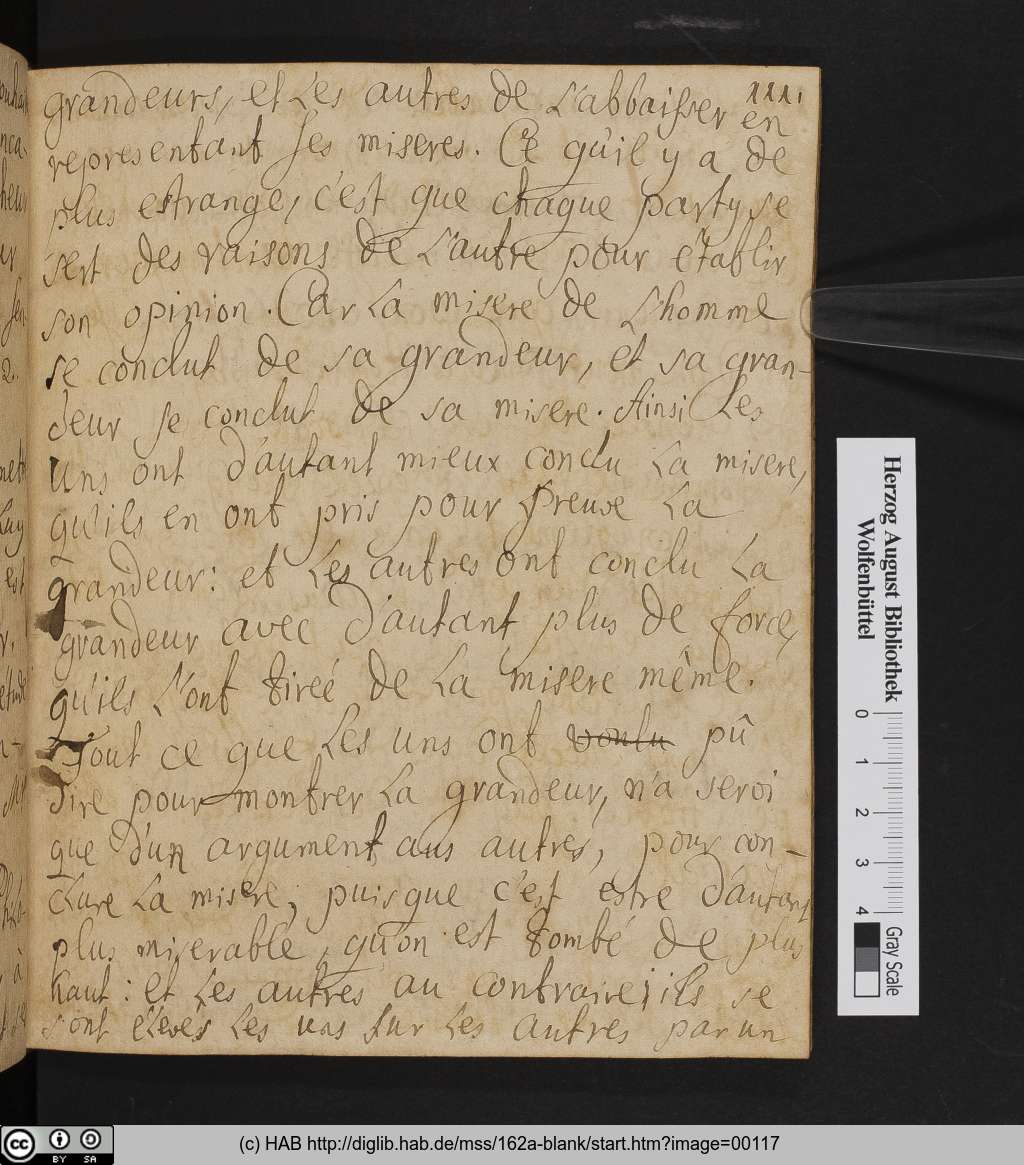 grandeurs, et Les autres de L'abbaisser en
representant ses miseres. Ce qu'il y a de
plus estrange, c'est que chaque party se
sert des raisons de L'autre pour établir
son opinion. Car La misere de L'homme
se conclut de sa grandeur, et sa gran-
deur se conclut de sa misere. Ainsi Les
uns ont d'autant mieux conclu La misere,
qu'ils en ont pris pour preuve La
grandeur: et Les autres ont conclu La
grandeur avec d'autant plus de force,
qu'ils L'ont tireé de La misere même.
Tout ce que Les uns ont voulu pû
dire pour montrer La grandeur, n'a servi
que d'un argument aus autres, pour con-
clure La misere; puisque c'est estre d'autant
plus miserable, qu'on est tombé de plus
haut: et Les autres au contraire; ils se
sont élevés Les uns sur Les autres par un
Herzog August Bibliothek
Wolfenbüttel
0 1 2 3 4
Gray Scale
cc BY SA
(c) HAB http://diglib.hab.de/mss/162a-blank/start.htm?image=00117